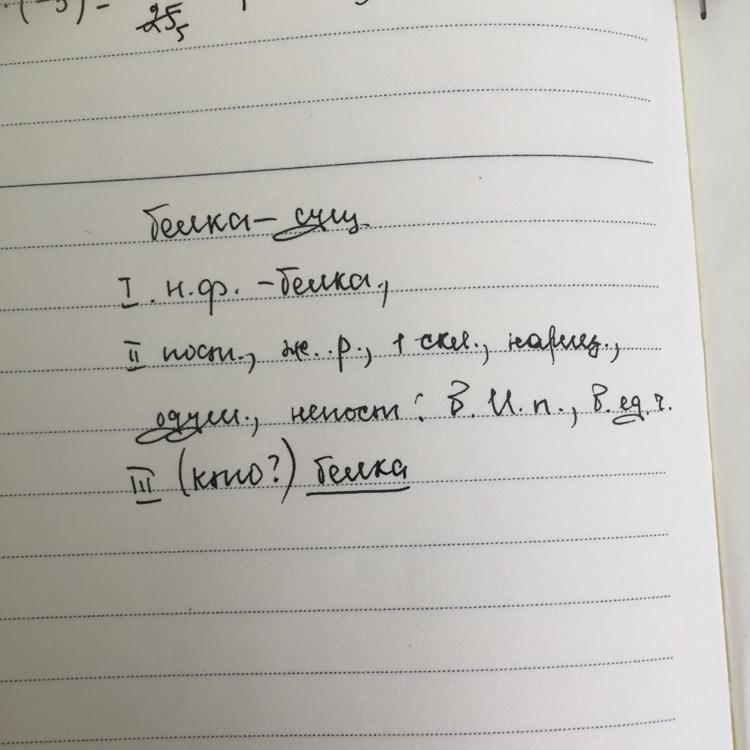 (-5) =
25 5
белка – сущ.
I. н.ф. – белка,
II пост., ж.р., 1 скл., нариц.,
одуш., непост: в И.п., в ед.ч.
III (кто?) белка